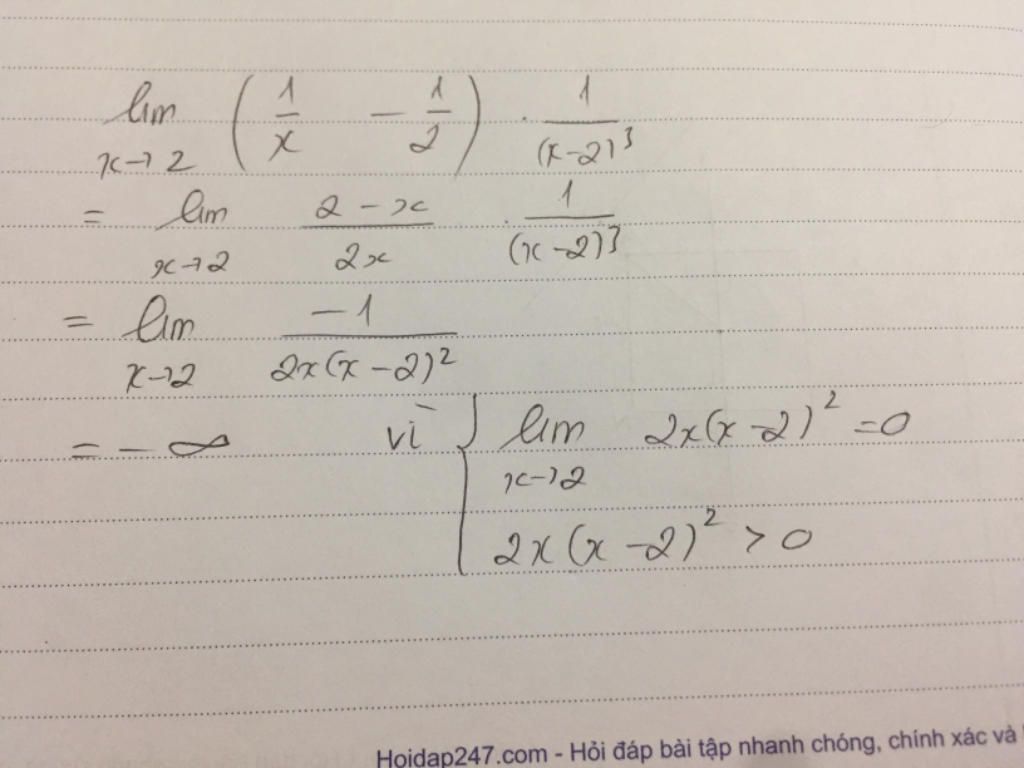 lim x→2 (1/x − 1/2) . 1/(x−2)³
= lim x→2 (2−x)/2x . 1/(x−2)³
= lim x→2 −1/2x(x−2)²
= −∞ vì { lim x→2 2x(x−2)² = 0
2x(x−2)² > 0
Hoidap247.com - Hỏi đáp bài tập nhanh chóng, chính xác và